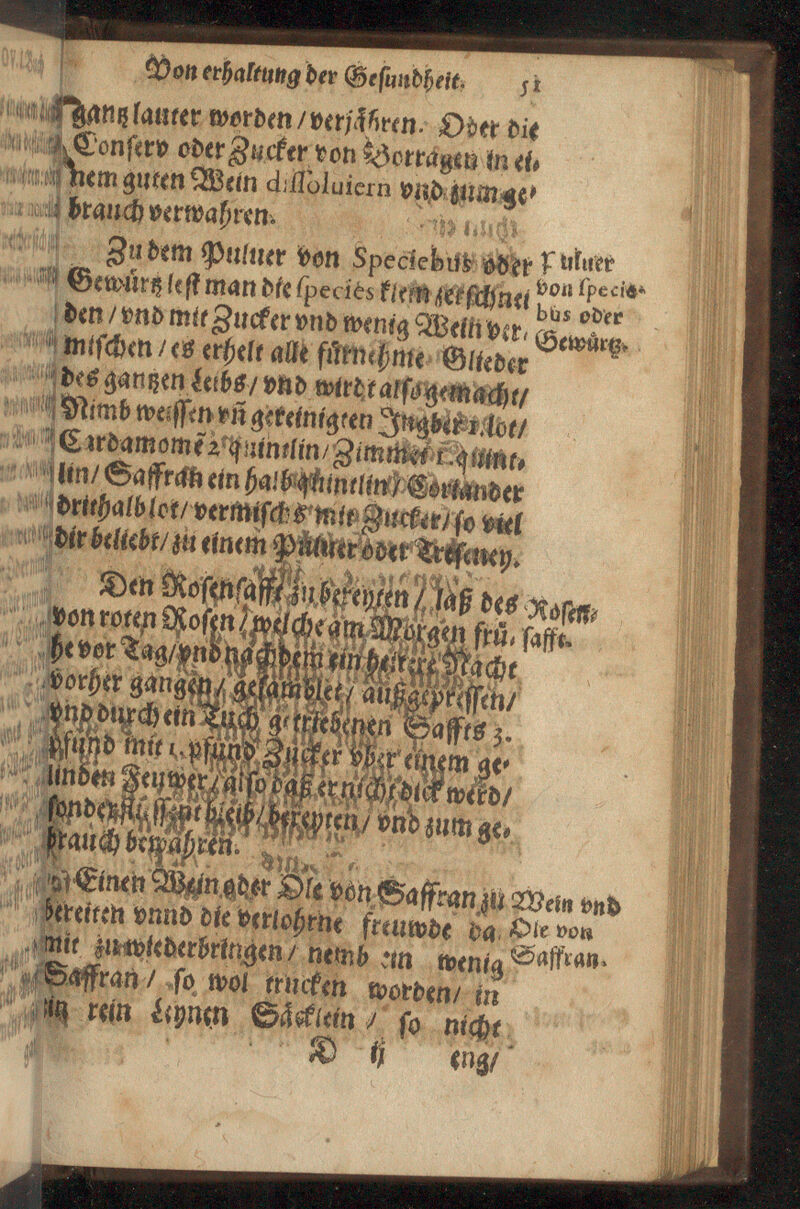 Von erhaltung der Gesundheit. 51
gantz lauter worden / verjåhren. Oder die
Conserv oder Zucker von Borragen in ei⸗
nem guten Wein dissoluiern vnd zum ge⸗
brauch verwahren.
Zu dem Puluer von Speciebus oder
Gewůrtz lest man die species klein zerschnei
den / vnd mit Zucker vnd wenig Wein ver⸗
mischen / es erhelt alle fůrnehme Glieder
des gantzen Leibs / vnd wirdt also gemacht /
Puluer
von specie⸗
bus oder
Gewůrtz.
Nimb weissen vñ gereinigten Ingber Lot /
Cardamomẽ 2. quintlin / Zimmet quint⸗
lin / Saffran ein halb quintlin / Coriander
drithalb lot / vermischs mit Zucker / so viel
dir beliebt / zu einem Puluer oder Triseney.
Den Rosensafft zu bereyten / laß des
von roten Rosen / welche am Morgen frů⸗
he vor Tag / vnd nachdem ein heitere Nacht
vorher gangen / gesamblet / außgepressen /
vnd durch ein Tuch getriebenen Saffts 3.
Rosen⸗
safft.
pfund mit 1. pfund Zucker vber einem ge⸗
linden Feuwer / also daß er nicht dick werd /
sonder flůssent bleib / bereyten / vnd zum ge⸗
brauch bewahren.
Einen Wein oder Ole von Saffran zu
bereiten vnnd die verlohrne freuwde da
mit zuwiederbringen / nemb ein wenig
Saffran / so wol trucken worden / in
rein Leynen Såcklein / so nicht
Wein vnd
Ole von
Saffran.
D ij eng /